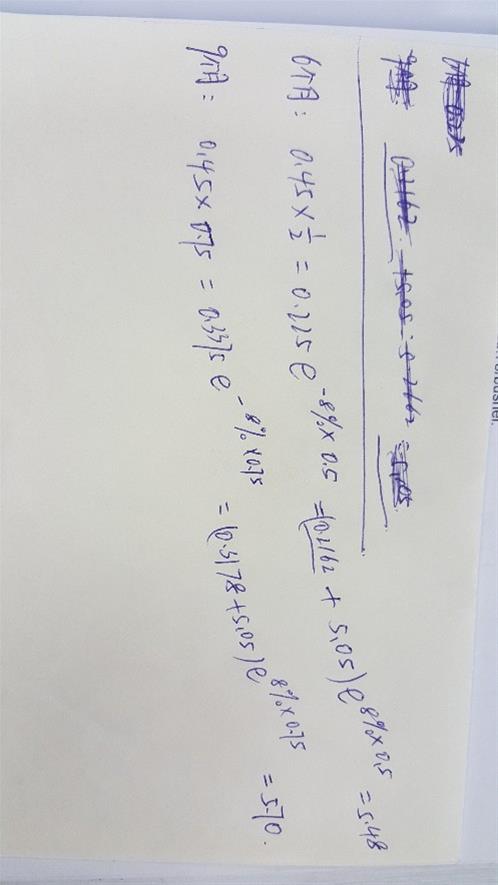 6个月: 0.45 × 1/2 = 0.225 e^-8%×0.5 = (0.2162 + 5.05) e^8%×0.5 = 5.48
9个月: 0.45 × 0.75 = 0.3375 e^-8%×0.75 = (0.3178 + 5.05) e^8%×0.75 = 5.70.